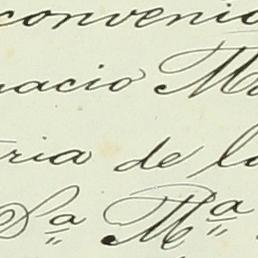 convenio
nacio M
ria de la
Sª Mª